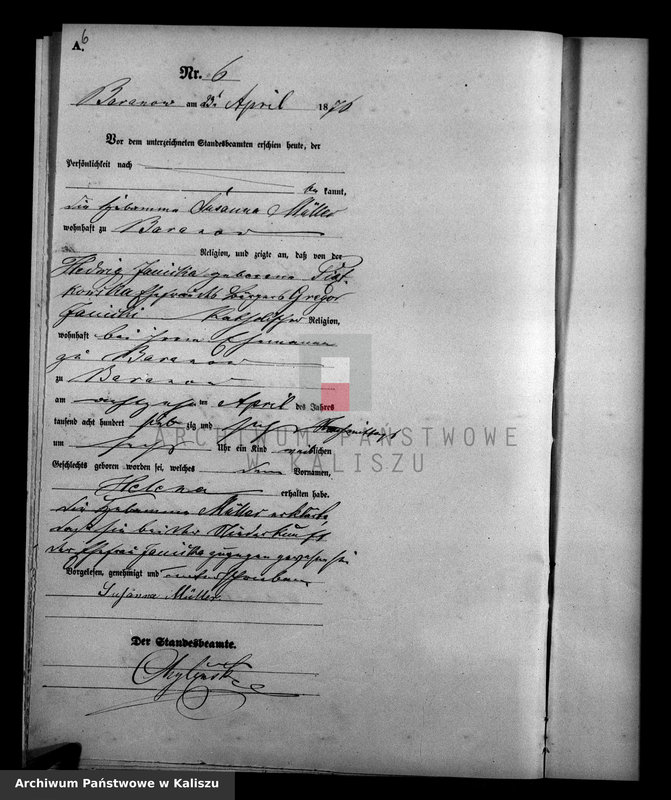 A. 6
Nr. 6
Baranow am 23t April 1876
Vor dem unterzeichneten Standesbeamten erschien heute, der
Persönlichkeit nach
be kannt,
die Hebamme Susanna Müller
wohnhaft zu Baranow
Religion, und zeigte an, daß von der
Hedwig Janicka geborene
Ehefrau des Bürgers Gregor
Janicki katholischer Religion,
wohnhaft bei ihrem Ehemanne
zu Baranow
zu Baranow
am achtzehn ten April des Jahres
tausend acht hundert sieb zig und sechs Nachmittags
um sechs Uhr ein Kind weiblichen
Geschlechts geboren worden sei, welches den Vornamen,
Helena erhalten habe.
Die Hebamme Müller erklärte,
daß sie bei der Niederkunft
der Ehefrau Janicka zugegen gewesen sei
Vorgelesen, genehmigt und unterschrieben
Susanna Müller.
Der Standesbeamte.
ARCHIWUM PAŃSTWOWE
W KALISZU
Archiwum Państwowe w Kaliszu